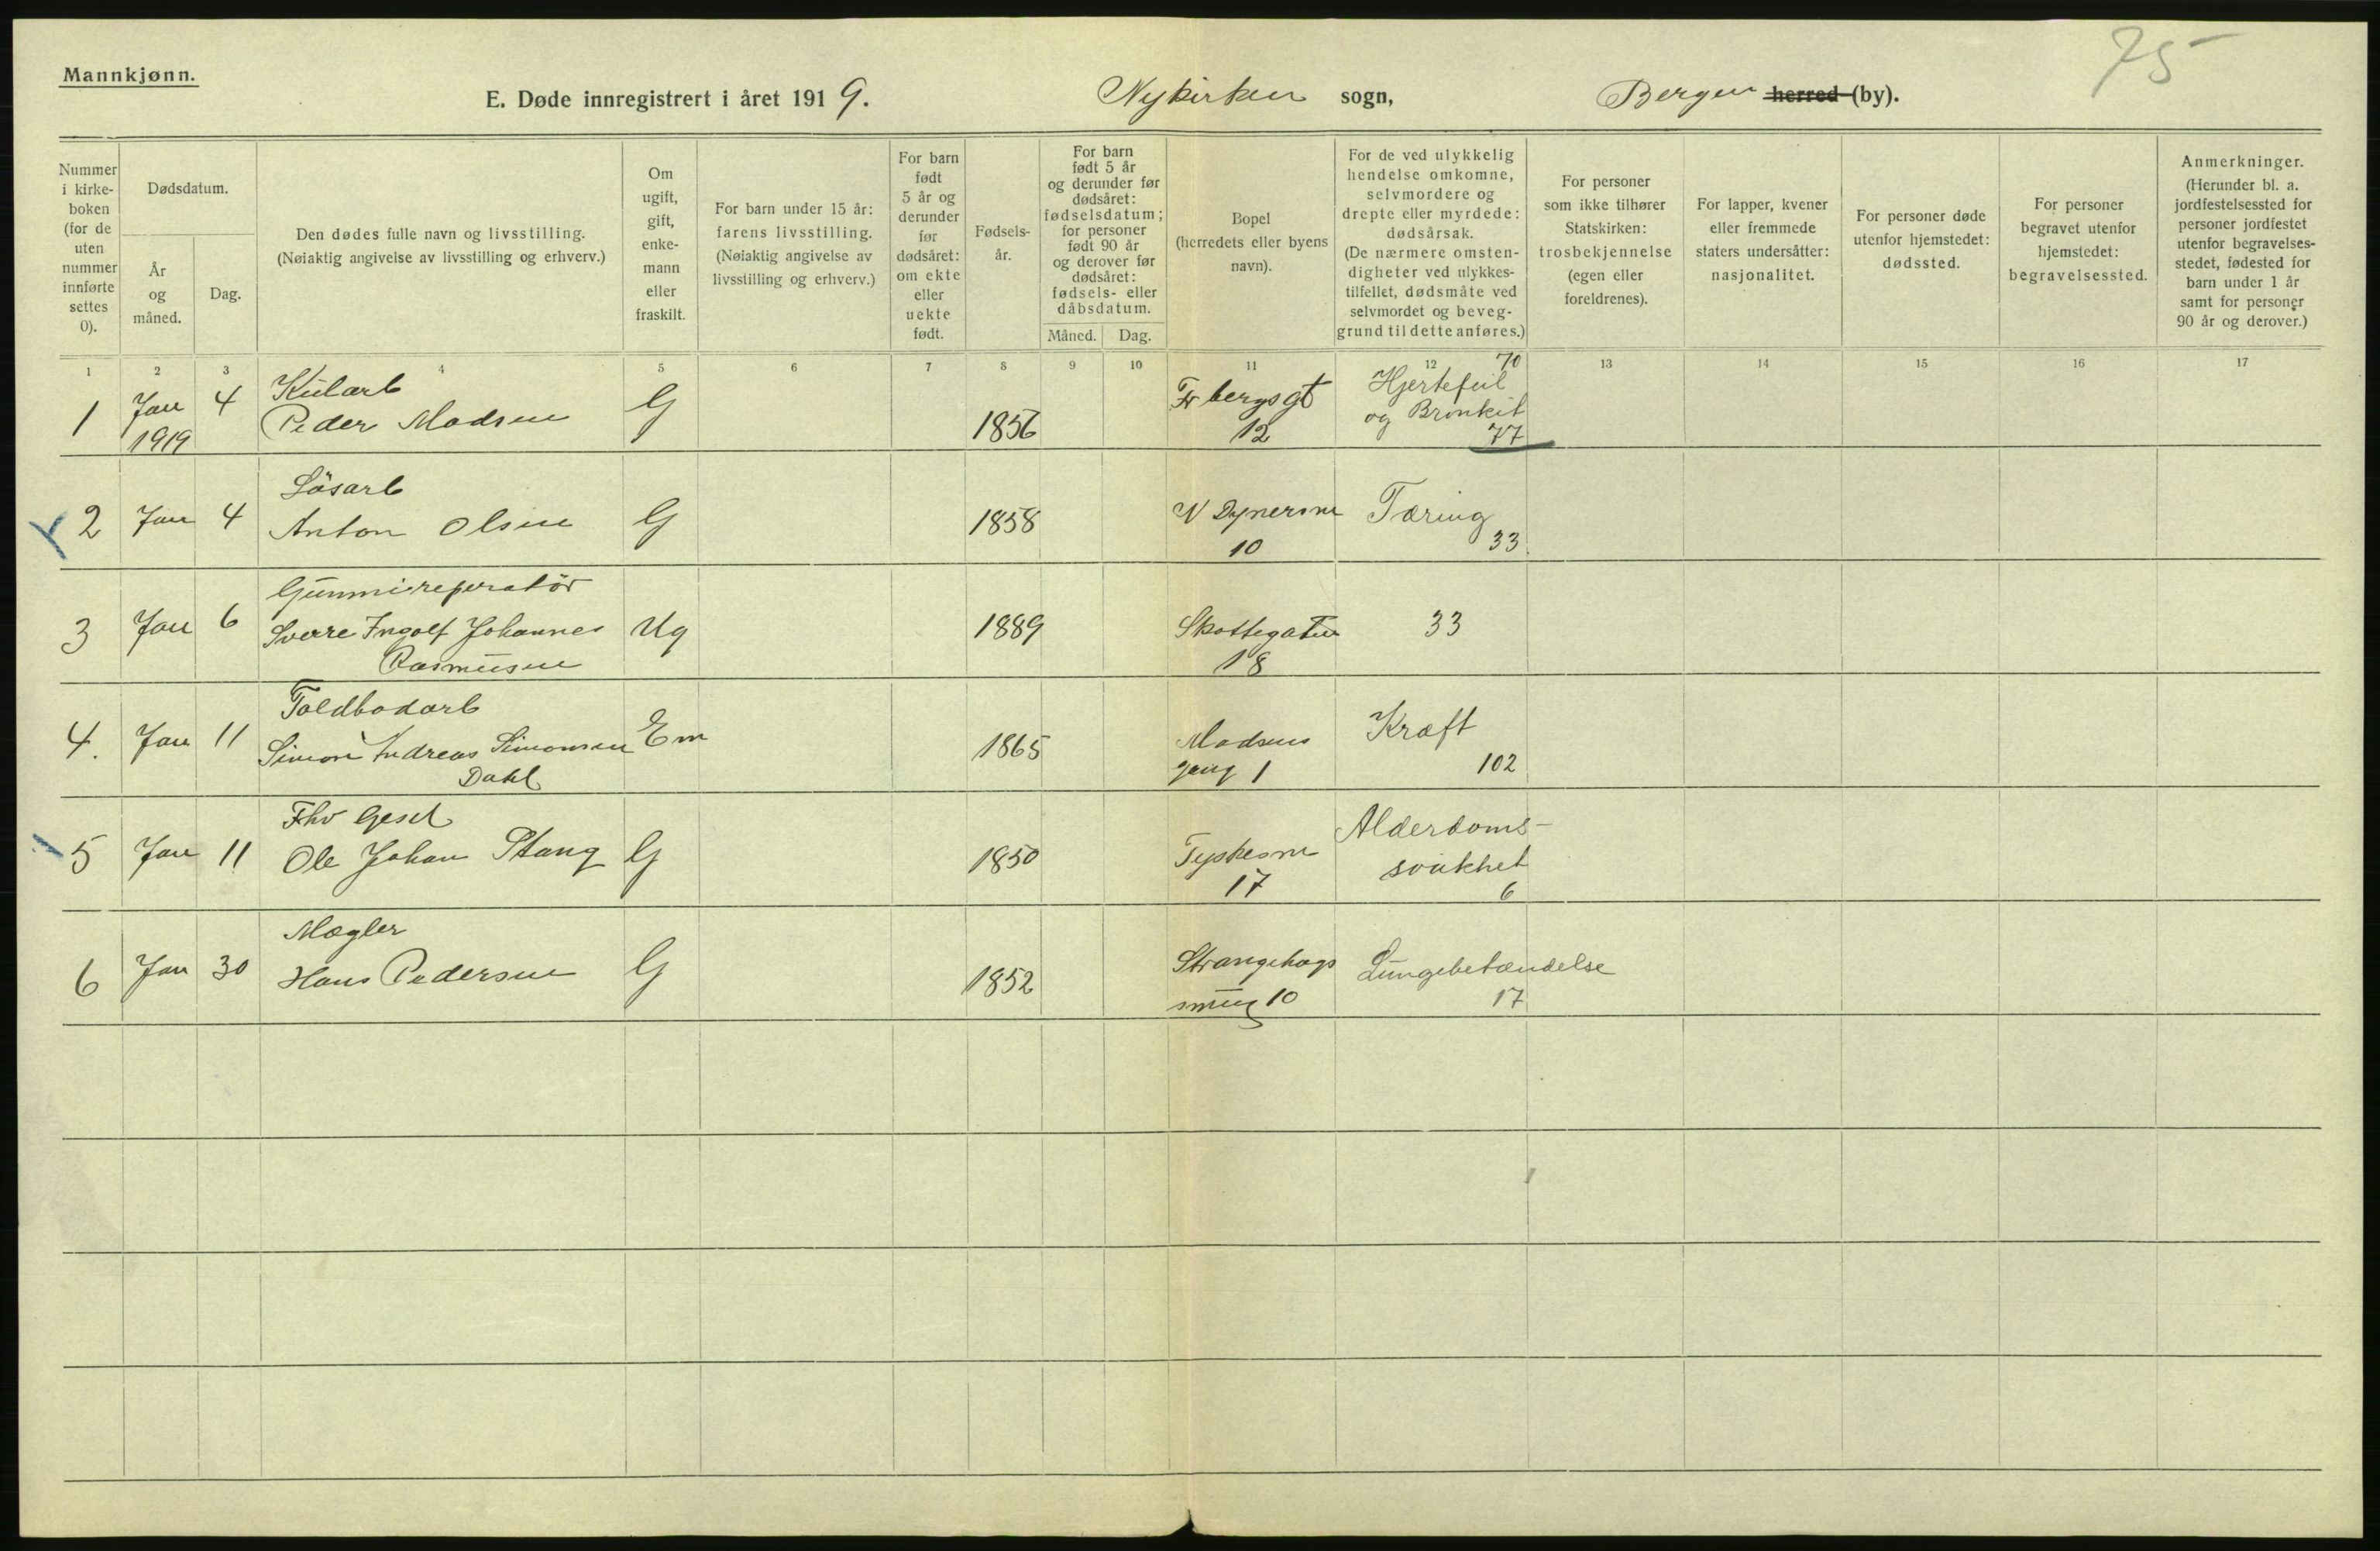 75
Mannkjønn.
E. Døde innregistrert i året 1919. Nykirken sogn, Bergen herred (by).
Nummer i kirke-boken (for de uten nummer innførte settes 0).
Dødsdatum.
År og måned.
Dag.
Den dødes fulle navn og livsstilling.
(Nøiaktig angivelse av livsstilling og erhverv.)
Om ugift, gift, enke-mann eller fraskilt.
For barn under 15 år: farens livsstilling.
(Nøiaktig angivelse av livsstilling og erhverv.)
For barn født 5 år og derunder før dødsåret: om ekte eller uekte født.
Fødsels-år.
For barn født 5 år og derunder før dødsåret: fødselsdatum; for personer født 90 år og derover før dødsåret: fødsels- eller dåbsdatum.
Måned.
Dag.
Bopel (herredets eller byens navn).
For de ved ulykkelig hendelse omkomne, selvmordere og drepte eller myrdede: dødsårsak.
(De nærmere omsten-digheter ved ulykkes-tilfellet, dødsmåte ved selvmordet og beveg-grund til dette anføres.)
For personer som ikke tilhører Statskirken: trosbekjennelse (egen eller foreldrenes).
For lapper, kvener eller fremmede staters undersåtter: nasjonalitet.
For personer døde utenfor hjemstedet: dødssted.
For personer begravet utenfor hjemstedet: begravelsessted.
Anmerkninger.
(Herunder bl. a. jordfestelsessted for personer jordfestet utenfor begravelses-stedet, fødested for barn under 1 år samt for personer 90 år og derover.)
1 2 3 4 5 6 7 8 9 10 11 12 13 14 15 16 17
70
1 Jan 1919 4 Kularb Peder Madsen G 1856 Fr bergsgt 12 Hjertefeil og Bronkit 77
2 Jan 4 Løsarb Anton Olsen G 1858 N Dynersm 10 Tæring 33
3 Jan 6 Gummireperatör Sverre Ingolf Johannes Rasmusen Ug 1889 Skottegaten 18 33
4. Jan 11 Toldbodarb Simon Andreas Simonsen Dahl Em 1865 Madsens gang 1 Kræft 102
5 Jan 11 Fhv Gesel Ole Johan Stang G 1850 Tyskesm 17 Alderdoms-svakhet 6
6 Jan 30 Mægler Hans Pedersen G 1852 Strangehags smug 10 Lungebetændelse 17